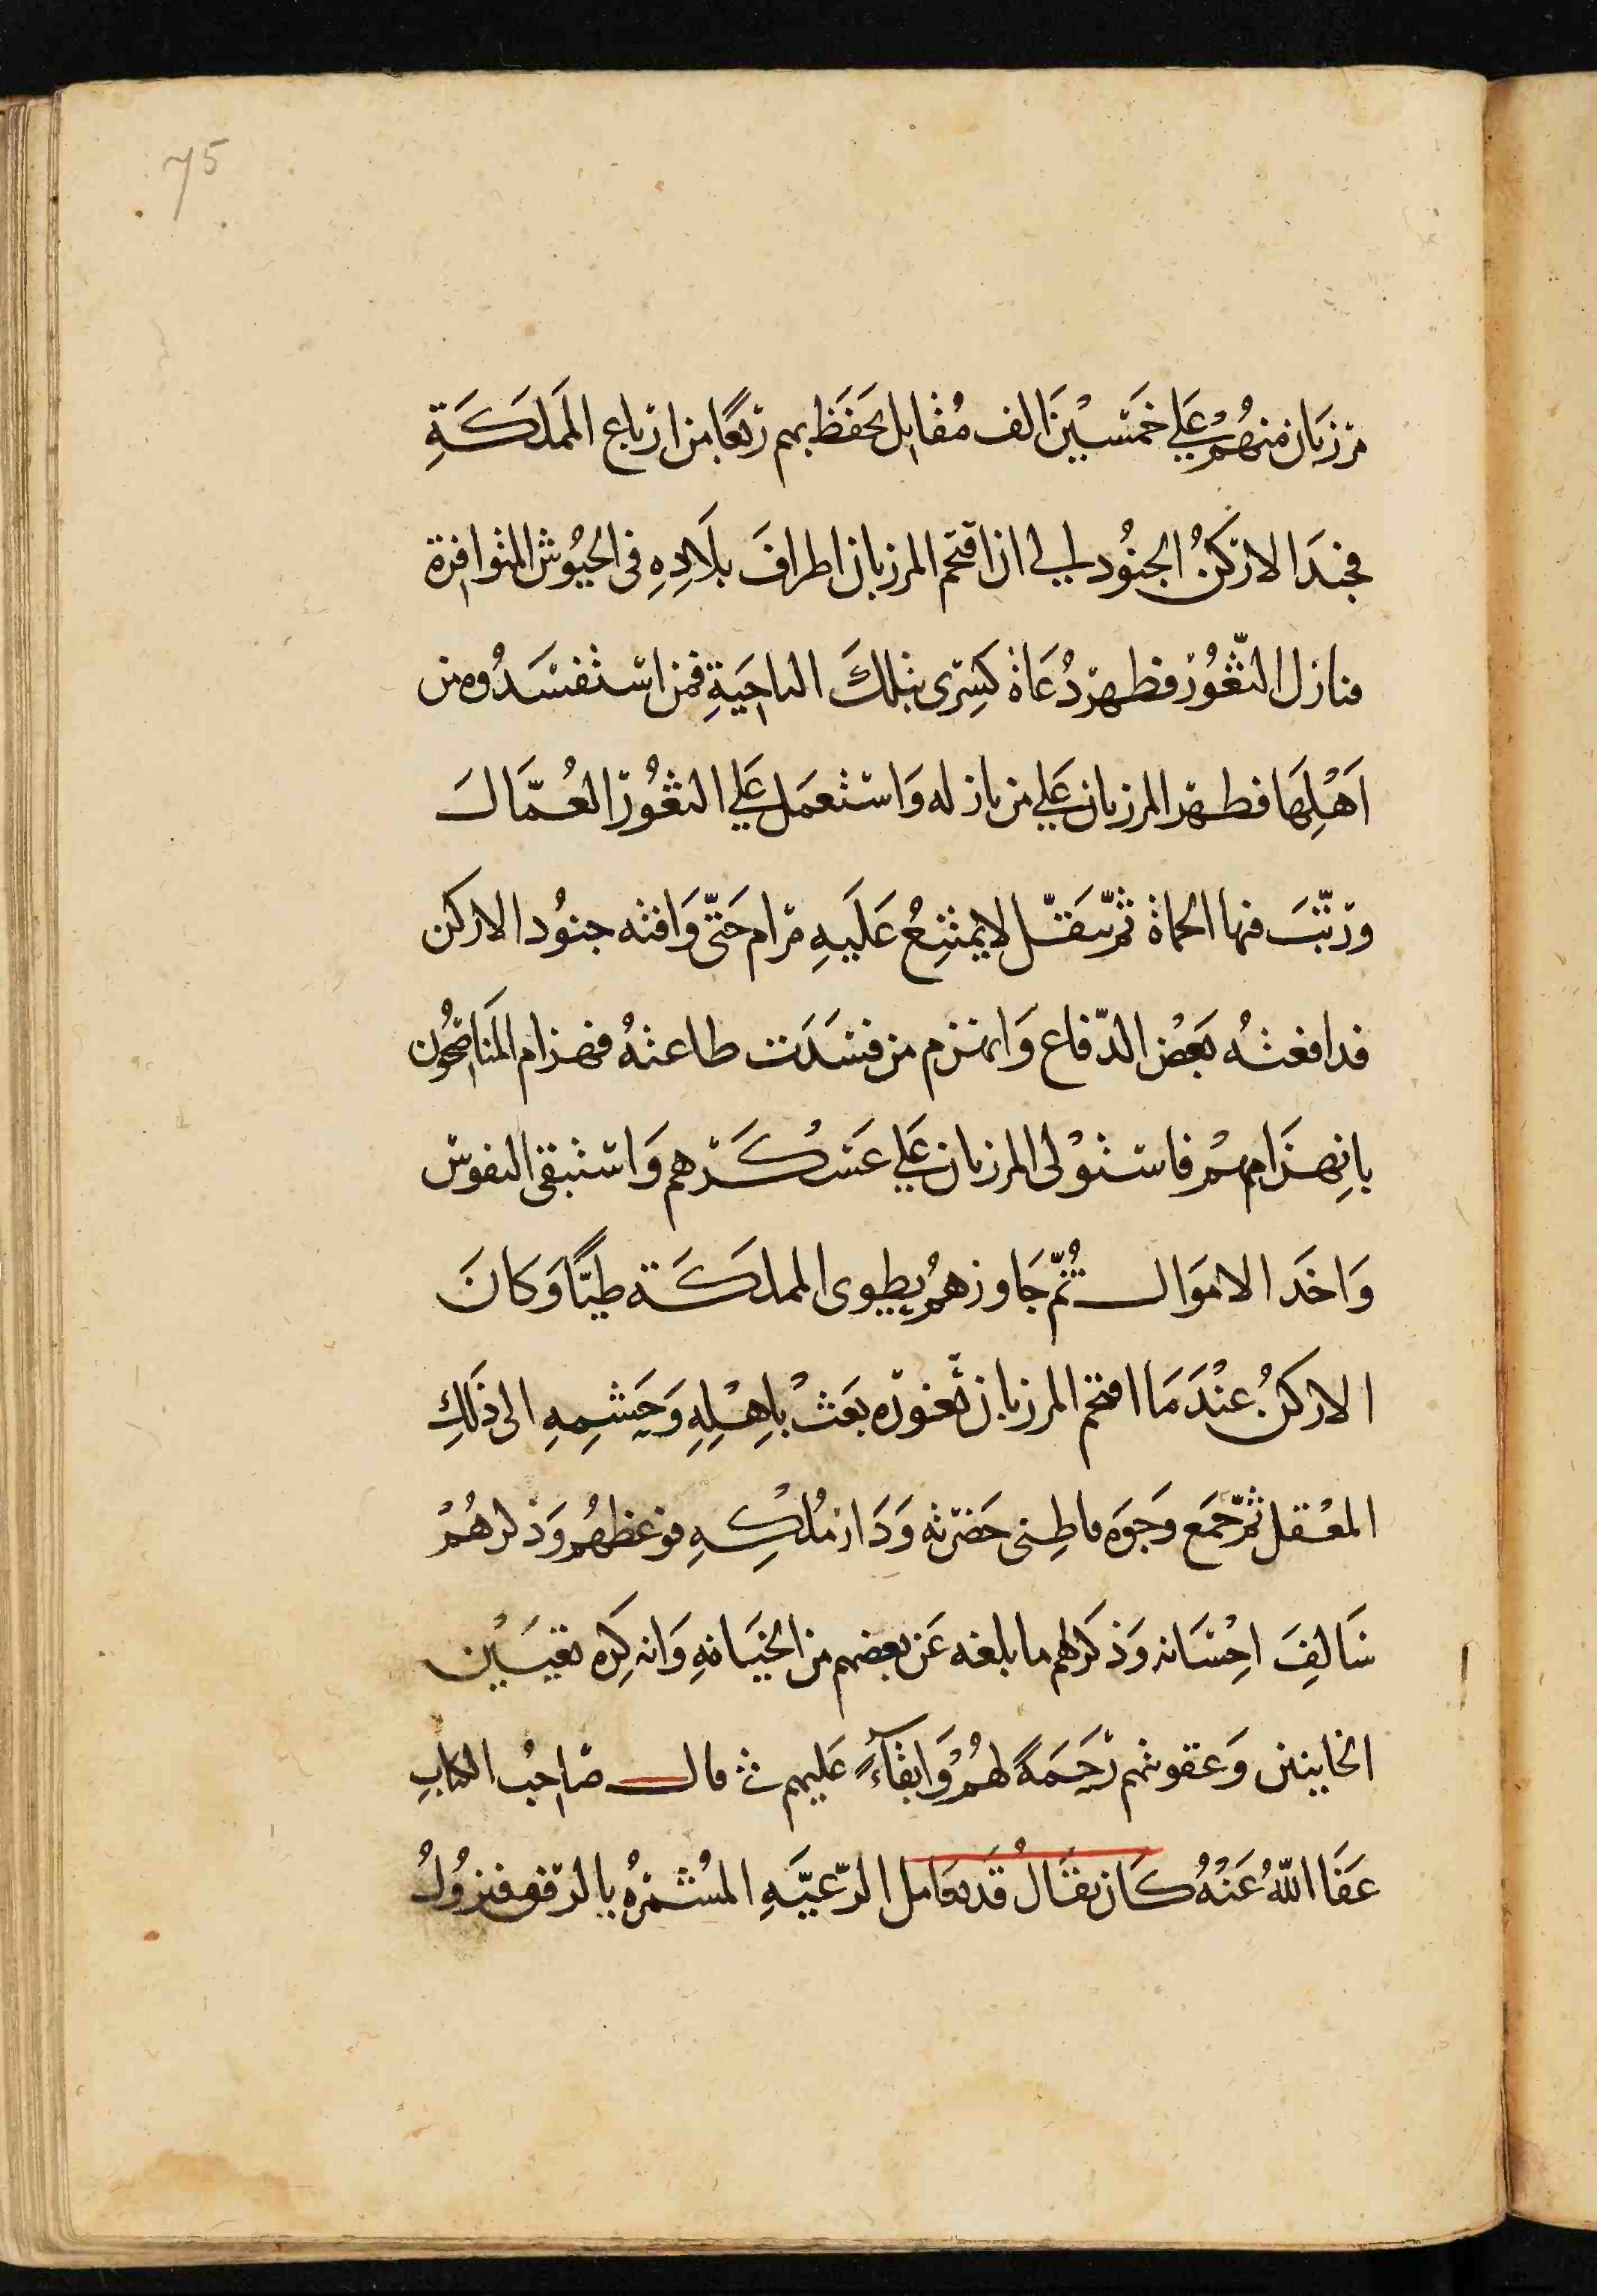 75
مرزبان منهم على خمسين الف مقاتل يحفظ بهم ربعا من ارباع المملكة
فجند الاركن الجنود الى ان اقتحم المرزبان اطراف بلاده فى الجيوش المتوافرة
فنازل الثغور فظهر دعاة كسرى بتلك الناحية فمن استفسدوه من
اهلها فظهر المرزبان على من نازله واستعمل على الثغور العمال
ورتب فيها الحماة ثم ينقل لا يمتنع عليه مرام حتى وافته جنود الاركن
فدافعته بعض الدفاع وانهزم من فسدت طاعته فهزام المناصحون
بانهزامهم فاستولى المرزبان على عسكرهم واستبقى النفوس
واخذ الاموال ثم جاوزهم يطوى المملكة طيا وكان
الاركن عند ما اقتحم المرزبان ثغوره بعث باهله وحشمه الى ذلك
المعقل ثم جمع وجوه قاطنى حضرته ودار ملكه فوعظهم وذكرهم
سالف احسانه وذكر لهم ما بلغه عن بعضهم من الخيانه وانه كره تعيين
الخاينين وعقوبتهم رحمة لهم وابقآء عليهم قال صاحب الكتاب
عفا الله عنه كان يقال قد تعامل الرعيه المستمره بالرفق فيزول